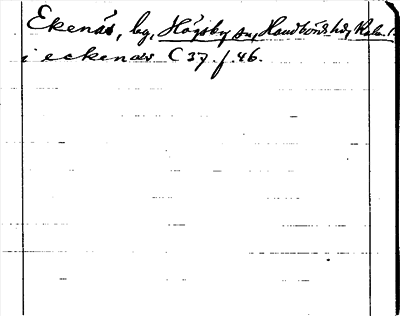 Ekenäs, by, Högsby sn, Handbörds hd, Kalm. l.
i eckenäs C 37. f. 46.